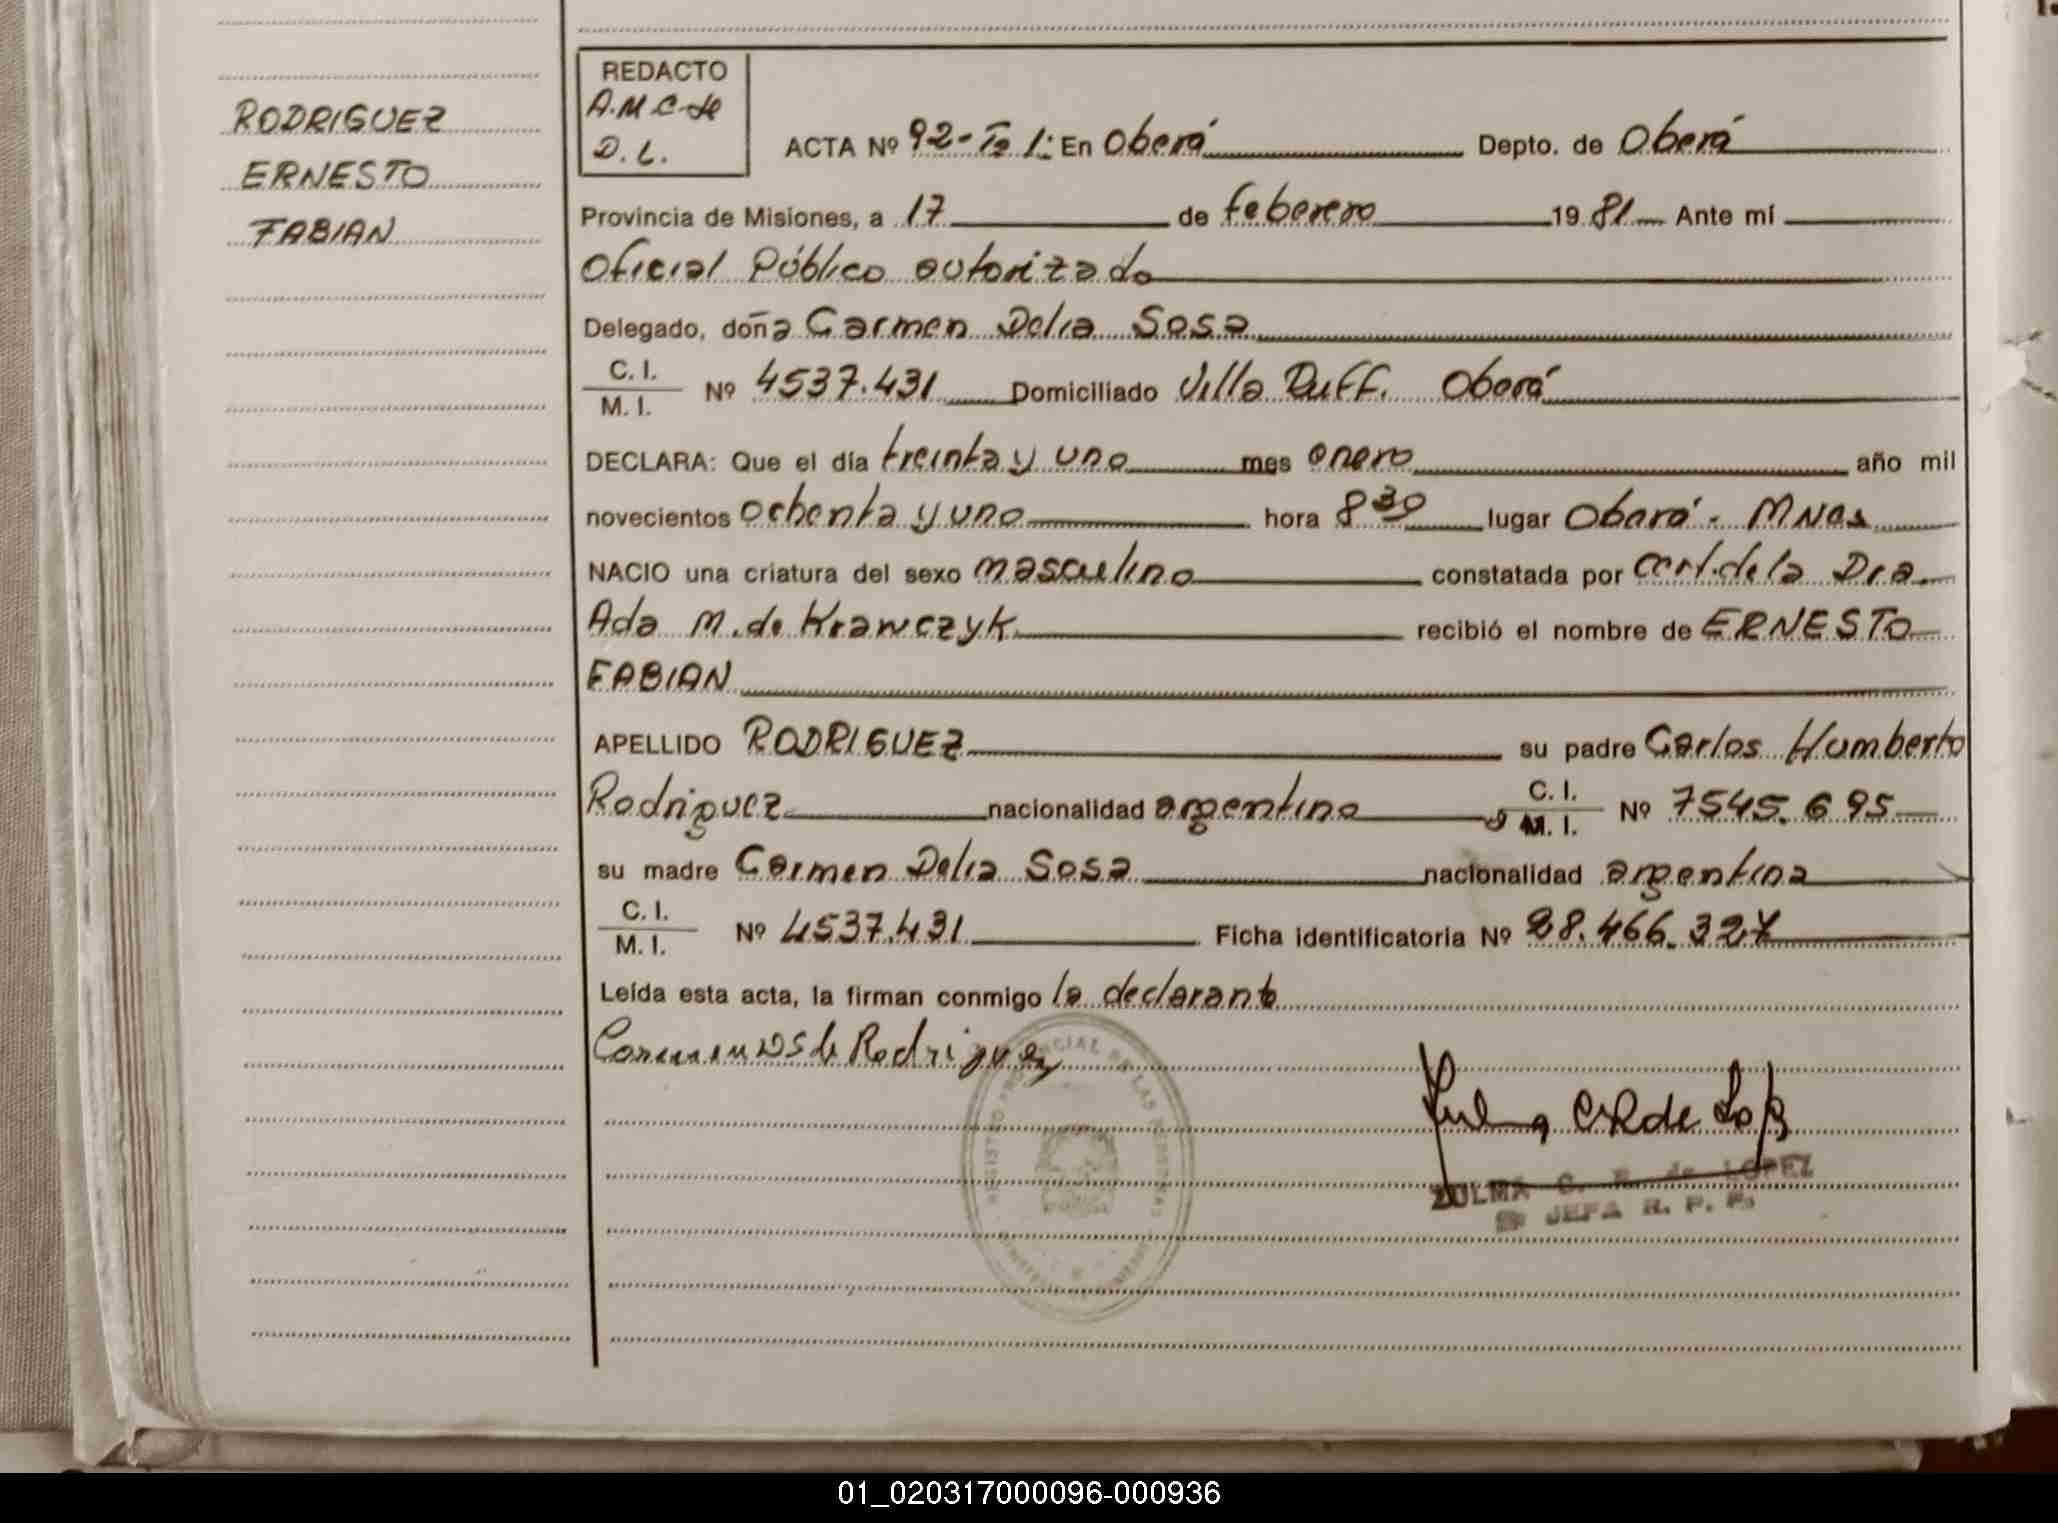 RODRIGUEZ
ERNESTO
FABIAN
REDACTO
A.M.C. de
D.L.
ACTA Nº 92-Tº 1: En Oberá Depto. de Oberá
Provincia de Misiones, a 17 de feberero 1981 Ante mí
Oficial Público autorizado
Delegado, doña Carmen Delia Sosa
C. I.
M. I. Nº 4537.431 Domiciliado Villa Ruff. Oberá
DECLARA: Que el día treinta y uno mes enero año mil
novecientos ochenta y uno hora 8 30 lugar Oberá - Mnes
NACIO una criatura del sexo masculino constatada por cert. de la Dra.
Ada M. de Krawczyk recibió el nombre de ERNESTO
FABIAN
APELLIDO RODRIGUEZ su padre Carlos Humberto
Rodriguez nacionalidad argentino C. I.
M. I. Nº 7545.695
su madre Carmen Delia Sosa nacionalidad argentina
C. I.
M. I. Nº 4537.431 Ficha identificatoria Nº 28.466.327
Leída esta acta, la firman conmigo la declarante
Carmen DS de Rodriguez
Zulma CR de López
ZULMA C. R. de LOPEZ
JEFA R. P. P.
REGISTRO PROVINCIAL DE LAS PERSONAS
01_020317000096-000936